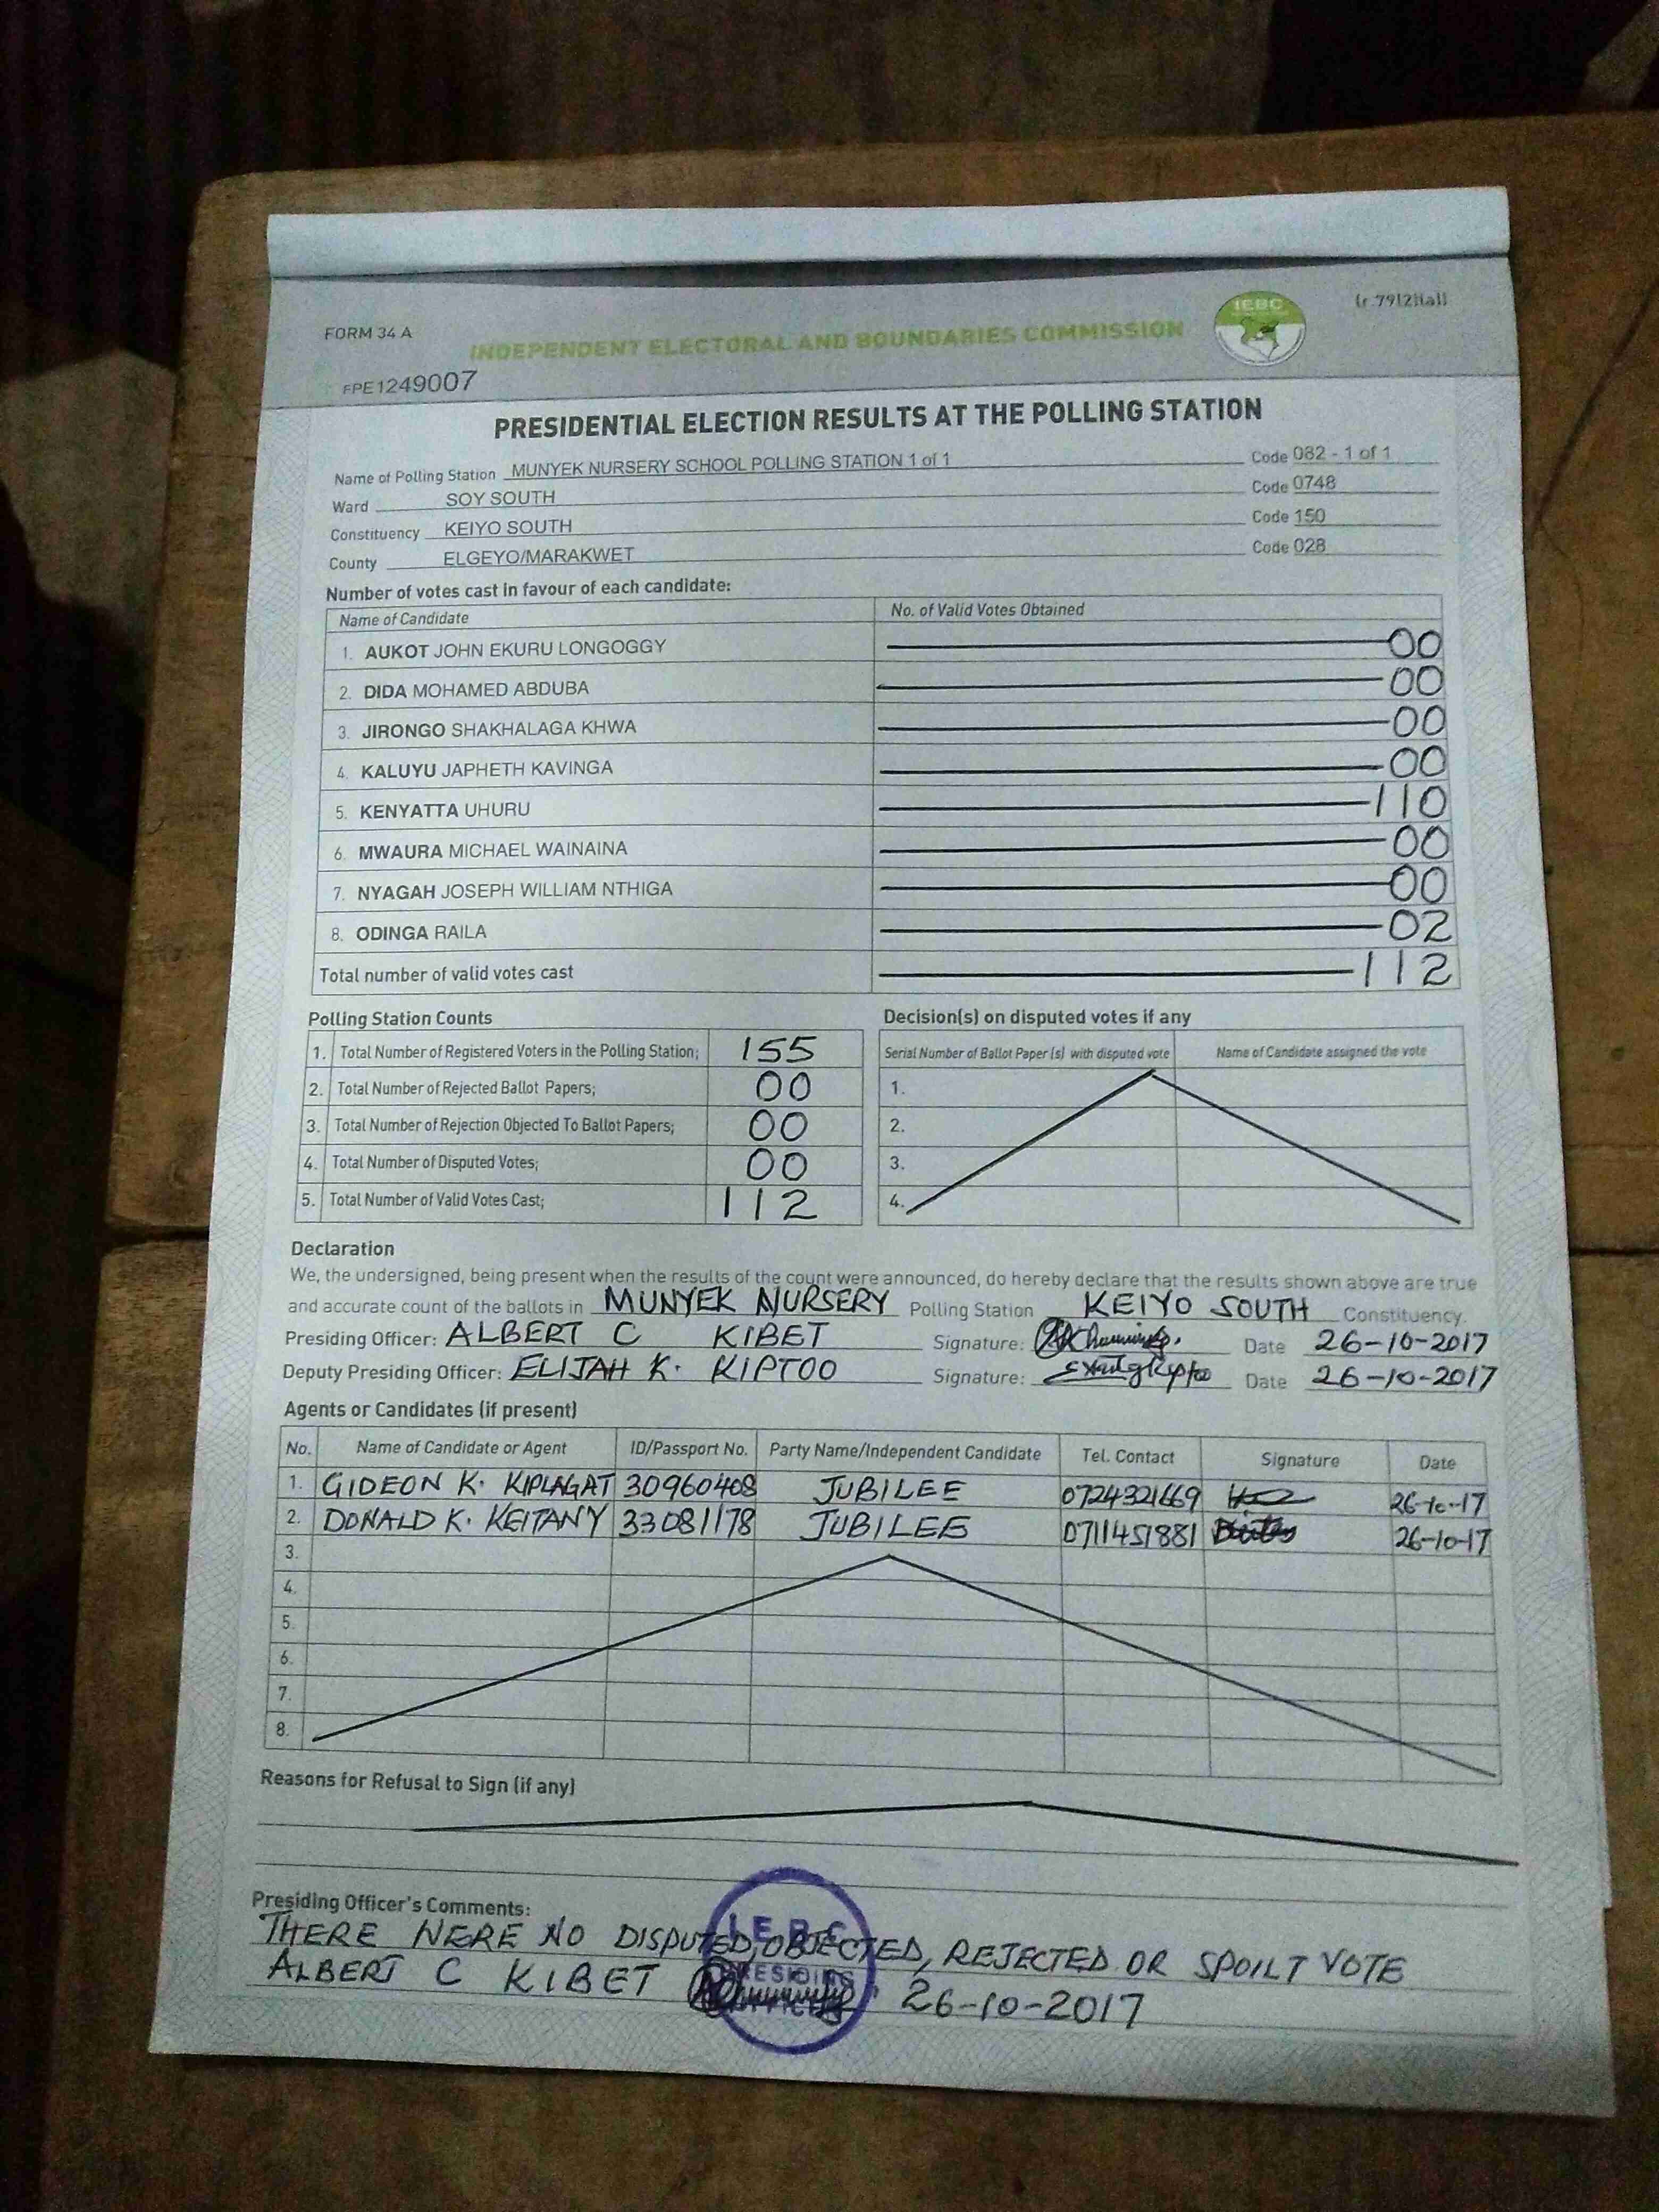 FORM 34 A
INDEPENDENT ELECTORAL AND BOUNDARIES COMMISSION
IEBC
(r.79(2)(a))
FPE1249007
PRESIDENTIAL ELECTION RESULTS AT THE POLLING STATION
Name of Polling Station MUNYEK NURSERY SCHOOL POLLING STATION 1 of 1 Code 082 - 1 of 1
Ward SOY SOUTH Code 0748
Constituency KEIYO SOUTH Code 150
County ELGEYO/MARAKWET Code 028
Number of votes cast in favour of each candidate:
Name of Candidate No. of Valid Votes Obtained
1. AUKOT JOHN EKURU LONGOGGY 00
2. DIDA MOHAMED ABDUBA 00
3. JIRONGO SHAKHALAGA KHWA 00
4. KALUYU JAPHETH KAVINGA 00
5. KENYATTA UHURU 110
6. MWAURA MICHAEL WAINAINA 00
7. NYAGAH JOSEPH WILLIAM NTHIGA 00
8. ODINGA RAILA 02
Total number of valid votes cast 112
Polling Station Counts
1. Total Number of Registered Voters in the Polling Station; 155
2. Total Number of Rejected Ballot Papers; 00
3. Total Number of Rejection Objected To Ballot Papers; 00
4. Total Number of Disputed Votes; 00
5. Total Number of Valid Votes Cast; 112
Decision(s) on disputed votes if any
Serial Number of Ballot Paper (s) with disputed vote Name of Candidate assigned the vote
1.
2.
3.
4.
Declaration
We, the undersigned, being present when the results of the count were announced, do hereby declare that the results shown above are true
and accurate count of the ballots in MUNYEK NURSERY Polling Station KEIYO SOUTH Constituency.
Presiding Officer: ALBERT C KIBET Signature: Date 26-10-2017
Deputy Presiding Officer: ELIJAH K. KIPTOO Signature: Date 26-10-2017
Agents or Candidates (if present)
No. Name of Candidate or Agent ID/Passport No. Party Name/Independent Candidate Tel. Contact Signature Date
1. GIDEON K. KIPLAGAT 30960408 JUBILEE 0724321669 26-10-17
2. DONALD K. KEITANY 33081178 JUBILEE 0711451881 26-10-17
3.
4.
5.
6.
7.
8.
Reasons for Refusal to Sign (if any)
Presiding Officer's Comments:
THERE WERE NO DISPUTED, OBJECTED, REJECTED OR SPOILT VOTE
ALBERT C KIBET 26-10-2017
I.E.B.C
PRESIDING
OFFICER